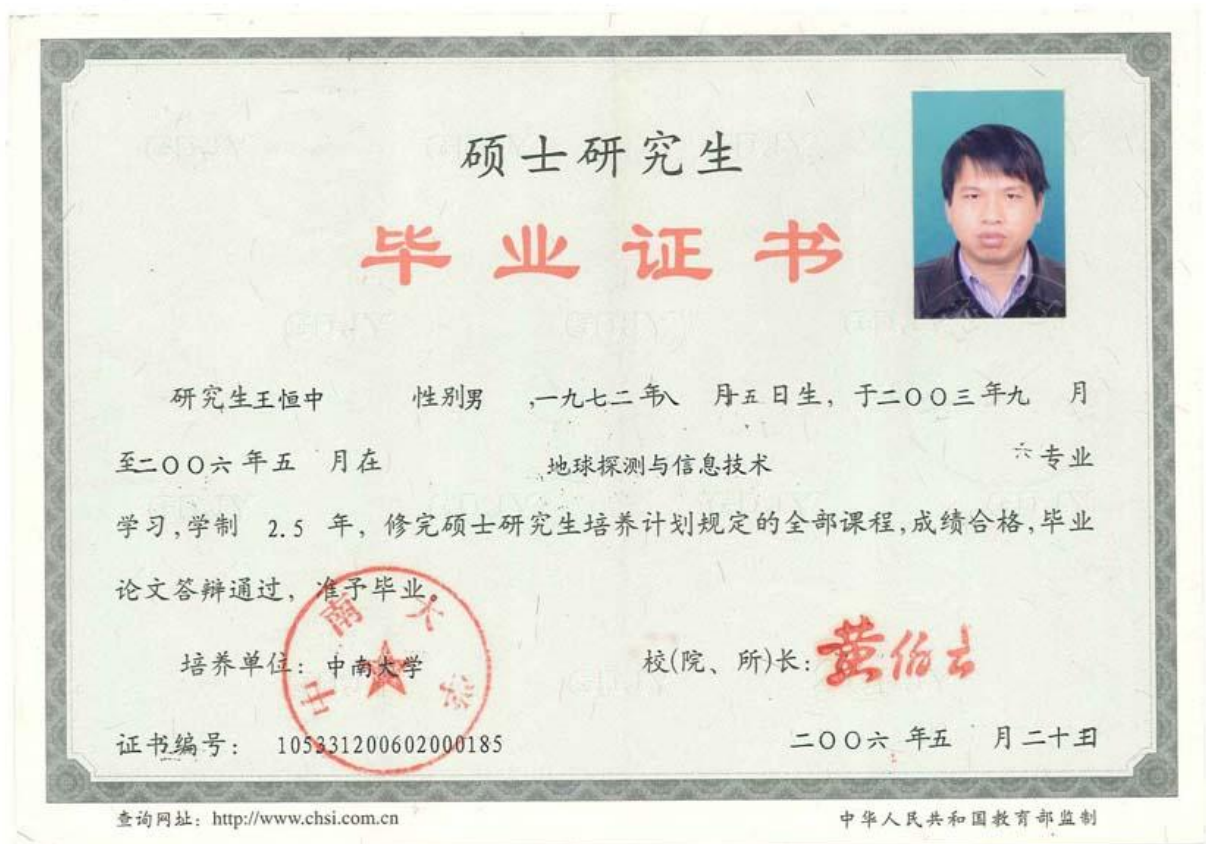 硕士研究生
毕业证书
研究生王恒中 性别男 ,一九七二年八 月十五日生, 于二〇〇三年九 月
至二〇〇六年五 月在 地球探测与信息技术 专业
学习,学制 2.5 年, 修完硕士研究生培养计划规定的全部课程,成绩合格,毕业
论文答辩通过, 准予毕业。
培养单位: 中南大学 校(院、所)长: 黄伯云
证书编号: 105331200602000185 二〇〇六 年五 月二十日
中南大学
查询网址: http://www.chsi.com.cn 中华人民共和国教育部监制